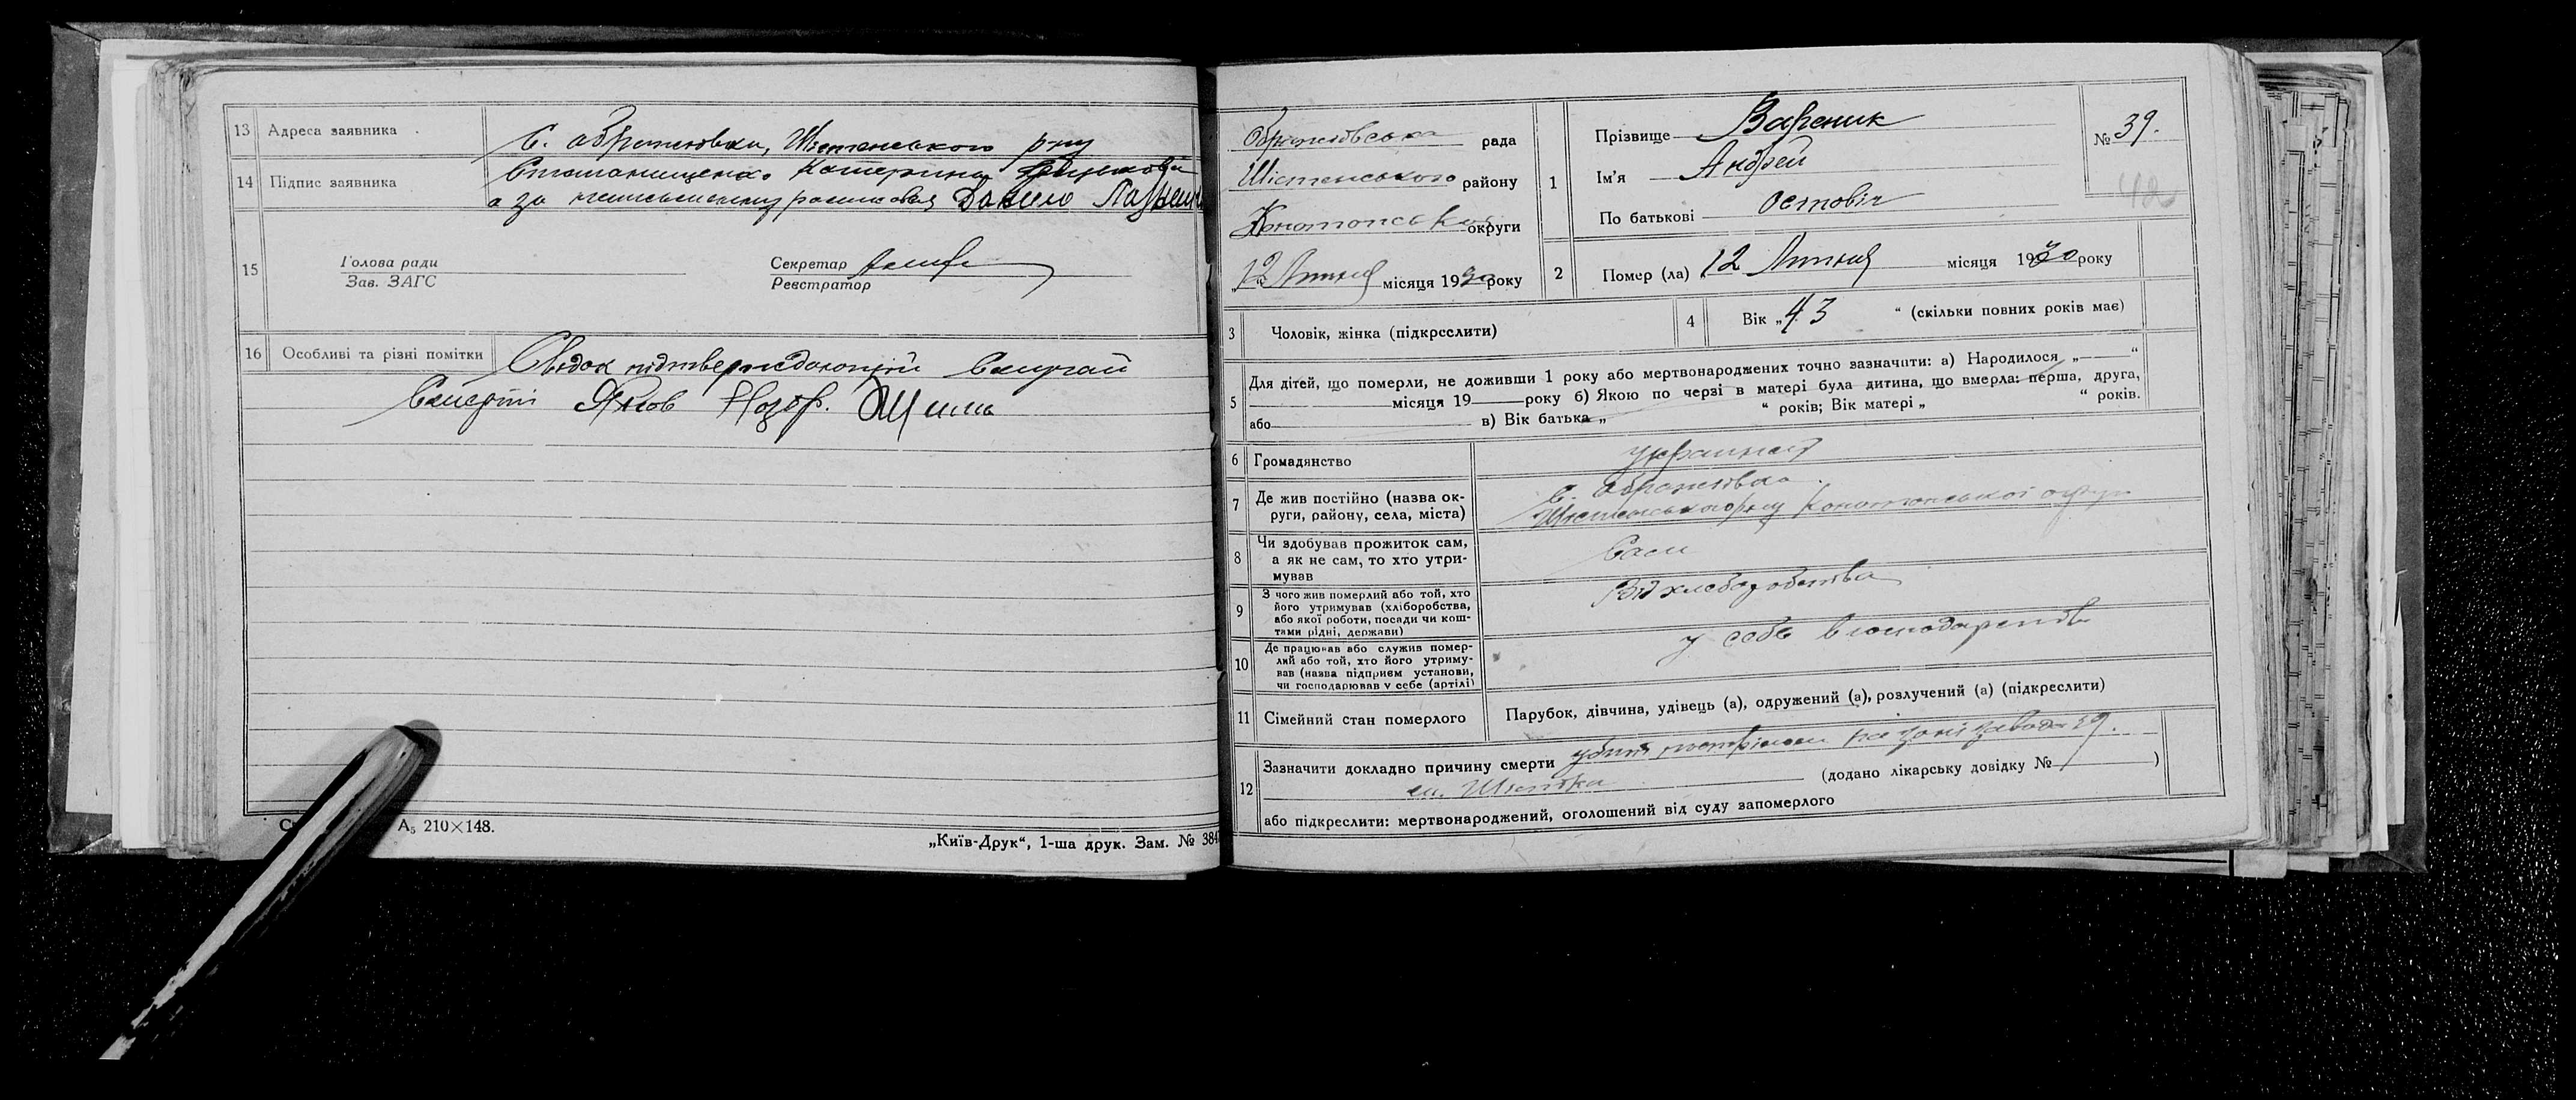 13 Адреса заявника С. Обратовка, Шостенського р-ну
14 Підпис заявника Катерина
а за Данило
15 Голова ради
Зав. ЗАГС
Секретар
Реєстратор
16 Особливі та різні помітки Свідок підтверждающій случай
смерті Яков
А₅ 210×148.
„Київ-Друк“, 1-ша друк. Зам. № 384
рада
Шостенського району
Конотопської округи
„12“ Липня місяця 1930 року
1 Прізвище Вареник
Ім’я Андрей
По батькові
№ 39.
42
2 Помер (ла) „12 Липня місяця 1930 року
3 Чоловік, жінка (підкреслити)
4 Вік „43 “ (скільки повних років має)
5 Для дітей, що померли, не доживши 1 року або мертвонароджених точно зазначити: а) Народилося „—“
місяця 19 року б) Якою по черзі в матері була дитина, що вмерла: перша, друга,
або в) Вік батька „ “ років; Вік матері „ “ років.
6 Громадянство
7 Де жив постійно (назва ок-
руги, району, села, міста)
С.
Шостенського р-ну Конотопської округи
8 Чи здобував прожиток сам,
а як не сам, то хто утри-
мував
Сам
9 З чого жив померлий або той, хто
його утримував (хліборобства,
або якої роботи, посади чи кош-
тами рідні, держави)
Від хлеборобства
10 Де працював або служив помер-
лий або той, хто його утриму-
вав (назва підприєм установи,
чи господарював у себе (артілі)
у себе в господарстві
11 Сімейний стан померлого Парубок, дівчина, удівець (а), одружений (а), розлучений (а) (підкреслити)
12 Зазначити докладно причину смерти
м. Шостка (додано лікарську довідку № )
або підкреслити: мертвонароджений, оголошений від суду запомерлого